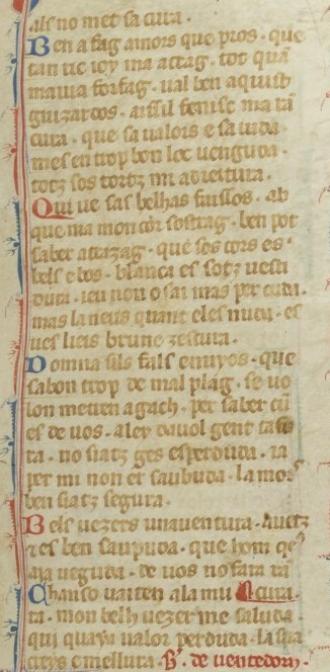 als no met sa cura.
Ben a fag amors que pros. que
tan ric ioy ma atrag. tot quā
mauia forfag. ual ben aquist
guizardos. aissil fenisc ma rā
cura. que sa ualors e sa iuda
mes en trop bon loc uenguda.
totz sos tortz mi adreitura.
Qui ue sas belhas faissos. ab
que ma mon cor sostrag. ben pot
saber atrazag. que sos cors es
bels e bos. blanca es sotz uesti
dura. ieu non o sai mas per cuda.
mas la neus quant eles nuda. es
ues lieis brune escura.
Domna sils fals enuyos. que
sabon trop de mal plag. se uo
lon metren agach. per saber cū
es de uos. a lor dauol gent
ta. no siatz ges esperduda. ia
per mi non er saubuda. lamors
ben siatz segura.
Bels uezers unauentura. auetz
es ben saupuda. que hom
aia ueguda. de uos no fara
Chanso uai ten ala mu
ta. mon belh uezer me saluda
qui quaya ualor perduda. la sua
creys e melhura. B'. de uentedorn.